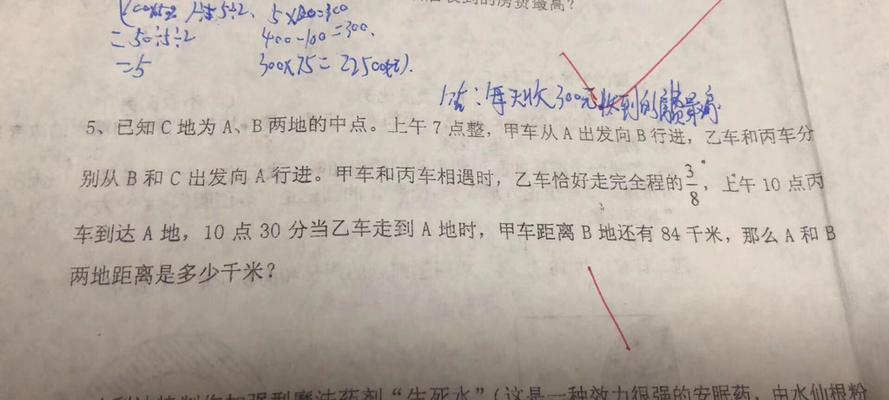 收到的房费最高？
5×60=300
=50÷5÷2 400-100=300.
=5 300×75=22500(元).
答:每天收300元收到的房费最高
5、已知 C 地为 A、B 两地的中点。上午 7 点整，甲车从 A 出发向 B 行进，乙车和丙车分
别从 B 和 C 出发向 A 行进。甲车和丙车相遇时，乙车恰好走完全程的3/8，上午 10 点丙
车到达 A 地，10 点 30 分当乙车走到 A 地时，甲车距离 B 地还有 84 千米，那么 A 和 B
两地距离是多少千米？
制作加强型魔法药剂“生死水”(这是一种效力很强的安眠药，由水仙根粉